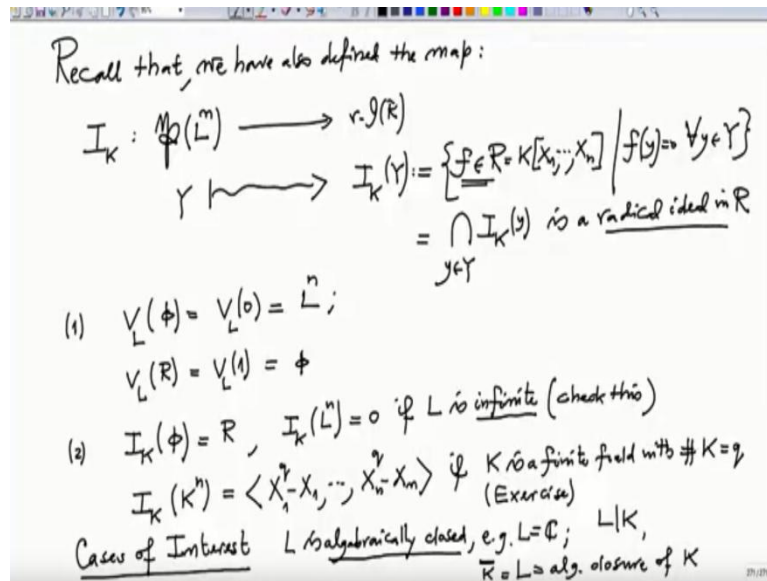 Recall that, we have also defined the map:
I_K : 𝔓(L^n) ⟶ r-𝒥(R)
Y ⟼ I_K(Y) := {f ∈ R = K[X_1, ..., X_n] | f(y)=0 ∀ y ∈ Y}
= ⋂_{y∈Y} I_K(y) is a radical ideal in R
(1) V_L(ϕ) = V_L(0) = L^n ;
V_L(R) = V_L(1) = ϕ
(2) I_K(ϕ) = R , I_K(L^n) = 0 if L is infinite (check this)
I_K(K^n) = ⟨X_1^q - X_1, ..., X_n^q - X_n⟩ if K is a finite field with # K = q
(Exercise)
Cases of Interest L is algebraically closed, e.g. L = ℂ ; L|K,
K̄ = L = alg. closure of K